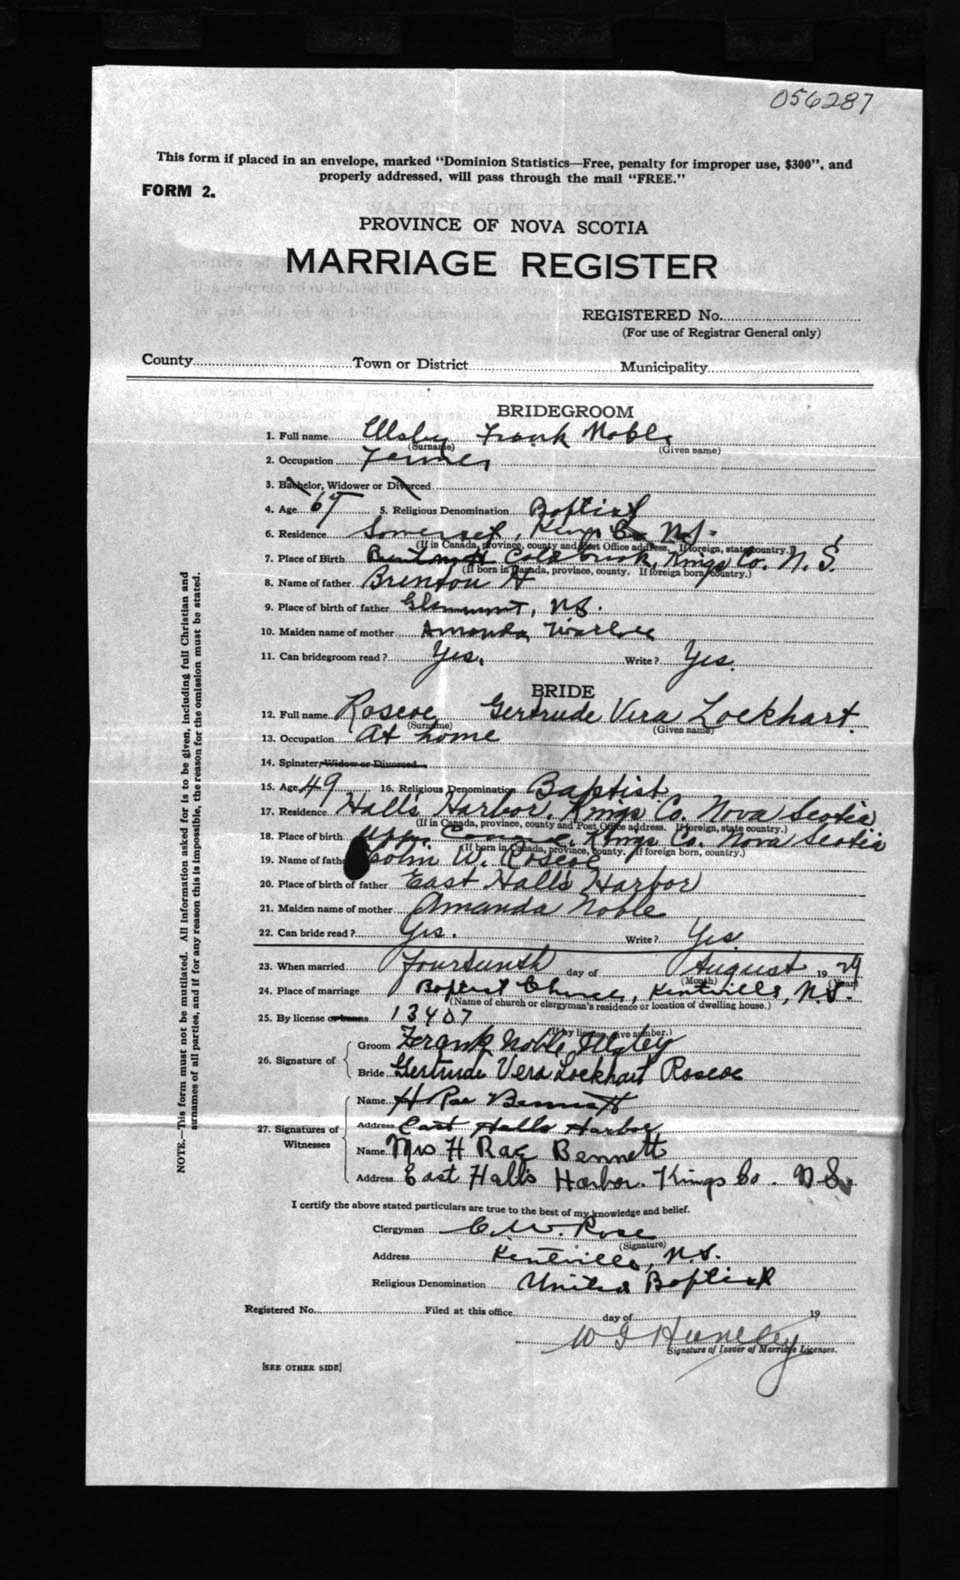 056287
This form if placed in an envelope, marked "Dominion Statistics—Free, penalty for improper use, $300", and
properly addressed, will pass through the mail "FREE."
FORM 2.
PROVINCE OF NOVA SCOTIA
MARRIAGE REGISTER
REGISTERED No.
(For use of Registrar General only)
County Town or District Municipality
BRIDEGROOM
1. Full name Illsley Frank Noble
(Surname) (Given name)
2. Occupation Farmer
3. Bachelor, Widower or Divorced
4. Age 5. Religious Denomination Baptist
6. Residence Somerset, Kings Co. N.S.
(If in Canada, province, county and Post Office address. If foreign, state country.)
7. Place of Birth Coldbrook, Kings Co. N. S.
(If born in Canada, province, county. If foreign born, country.)
8. Name of father Brenton H
9. Place of birth of father N.S.
10. Maiden name of mother Amanda
11. Can bridegroom read? Yes. Write? Yes.
BRIDE
12. Full name Roscoe Gertrude Vera Lockhart.
(Surname) (Given name)
13. Occupation At home
14. Spinster, Widow or Divorced
15. Age 49 16. Religious Denomination Baptist
17. Residence Halls Harbor, Kings Co. Nova Scotia
(If in Canada, province, county and Post Office address. If foreign, state country.)
18. Place of birth Kings Co. Nova Scotia
(If born in Canada, province, county. If foreign born, country.)
19. Name of father John W. Roscoe
20. Place of birth of father East Halls Harbor
21. Maiden name of mother Amanda Noble
22. Can bride read? Yes. Write? Yes.
23. When married Fourteenth day of August 1929
(Month) (Year)
24. Place of marriage Baptist Church, Kentville, N.S.
(Name of church or clergyman's residence or location of dwelling house.)
25. By license or banns 13407
(If by license, give number.)
26. Signature of
Groom Frank Noble Illsley
Bride Gertrude Vera Lockhart Roscoe
27. Signatures of Witnesses
Name H Rae Bennett
Address East Halls Harbor
Name Mrs H Rae Bennett
Address East Halls Harbor. Kings Co. N.S.
I certify the above stated particulars are true to the best of my knowledge and belief.
Clergyman C. W. Rose
(Signature)
Address Kentville, N.S.
Religious Denomination United Baptist
Registered No. Filed at this office day of 19
W G Huntley
Signature of Issuer of Marriage Licenses.
[SEE OTHER SIDE]
NOTE.—This form must not be mutilated. All information asked for is to be given, including full Christian and
surnames of all parties, and if for any reason this is impossible, the reason for the omission must be stated.